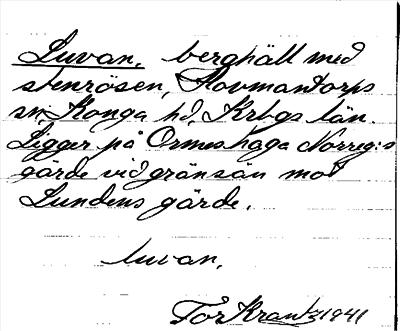 Luvan, berghäll med
stenrösen, Hovmantorps
sn, Konga hd, Krbgs län.
Ligger på Ormeshaga Norreg:s
gärde vid gränsen mot
Lundens gärde.
luvan,
Tor Krantz 1941